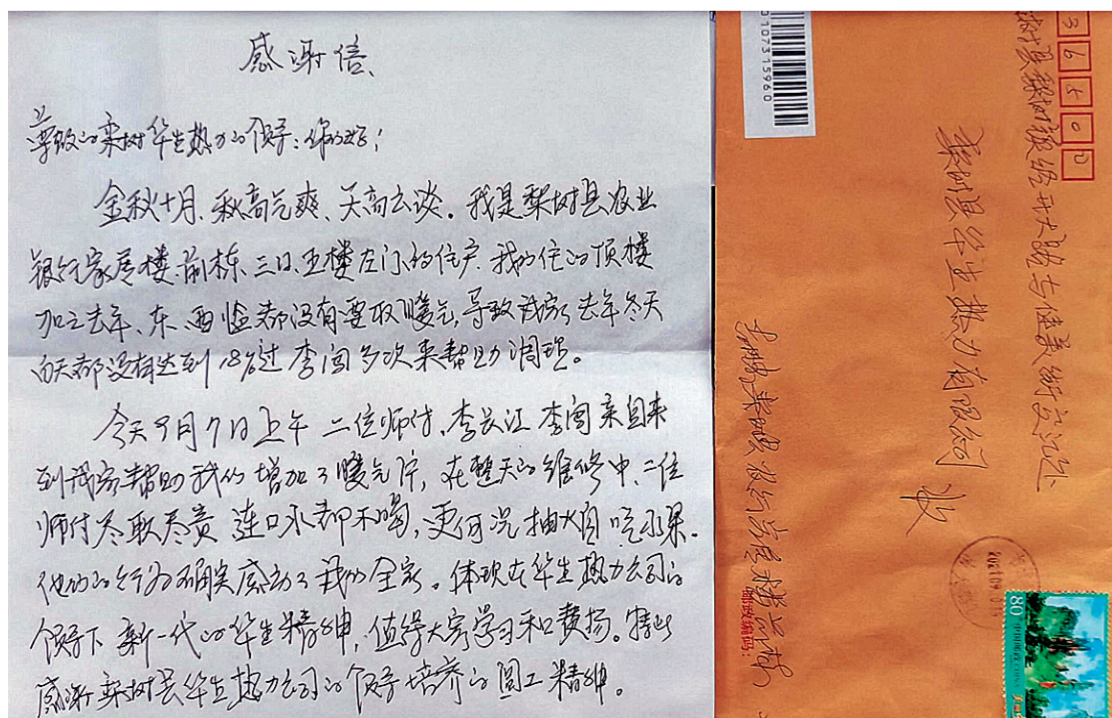 感谢信、
尊敬的梨树华生热力的领导:你们好!
金秋十月、秋高气爽、天高云谈。我是梨树县农业
银行家属楼、前栋、三口、五楼左门的住户 我们住的顶楼
加之去年、东、西临都没有要取暖气,导致我家去年冬天
白天都没有达到18°过 李闯多次来帮助调理。
今天9月7日上午 二位师付、李长江 李闯亲自来
到我家帮助我们增加了暖气片,在整天的维修中、二位
师付尽职尽责 连口水都不喝,更何况抽烟吃水果。
他们的行为确实感动了我们全家。体现在华生热力公司的
领导下 新一代的华生精神,值得大家学习和赞扬。特此
感谢梨树县华生热力公司的领导培养的员工精神。
0107315960
136500
梨树县梨树镇经开大路
梨树县华生热力有限公司
收
邮政编码:
80
中国邮政 CHINA